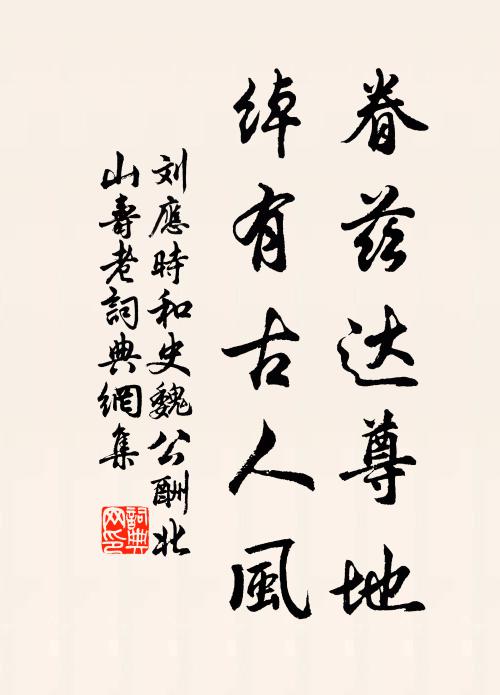 眷兹达尊地
绰有古人風
刘應時和史魏公酬北
山壽老詞典網集
詞典
网印